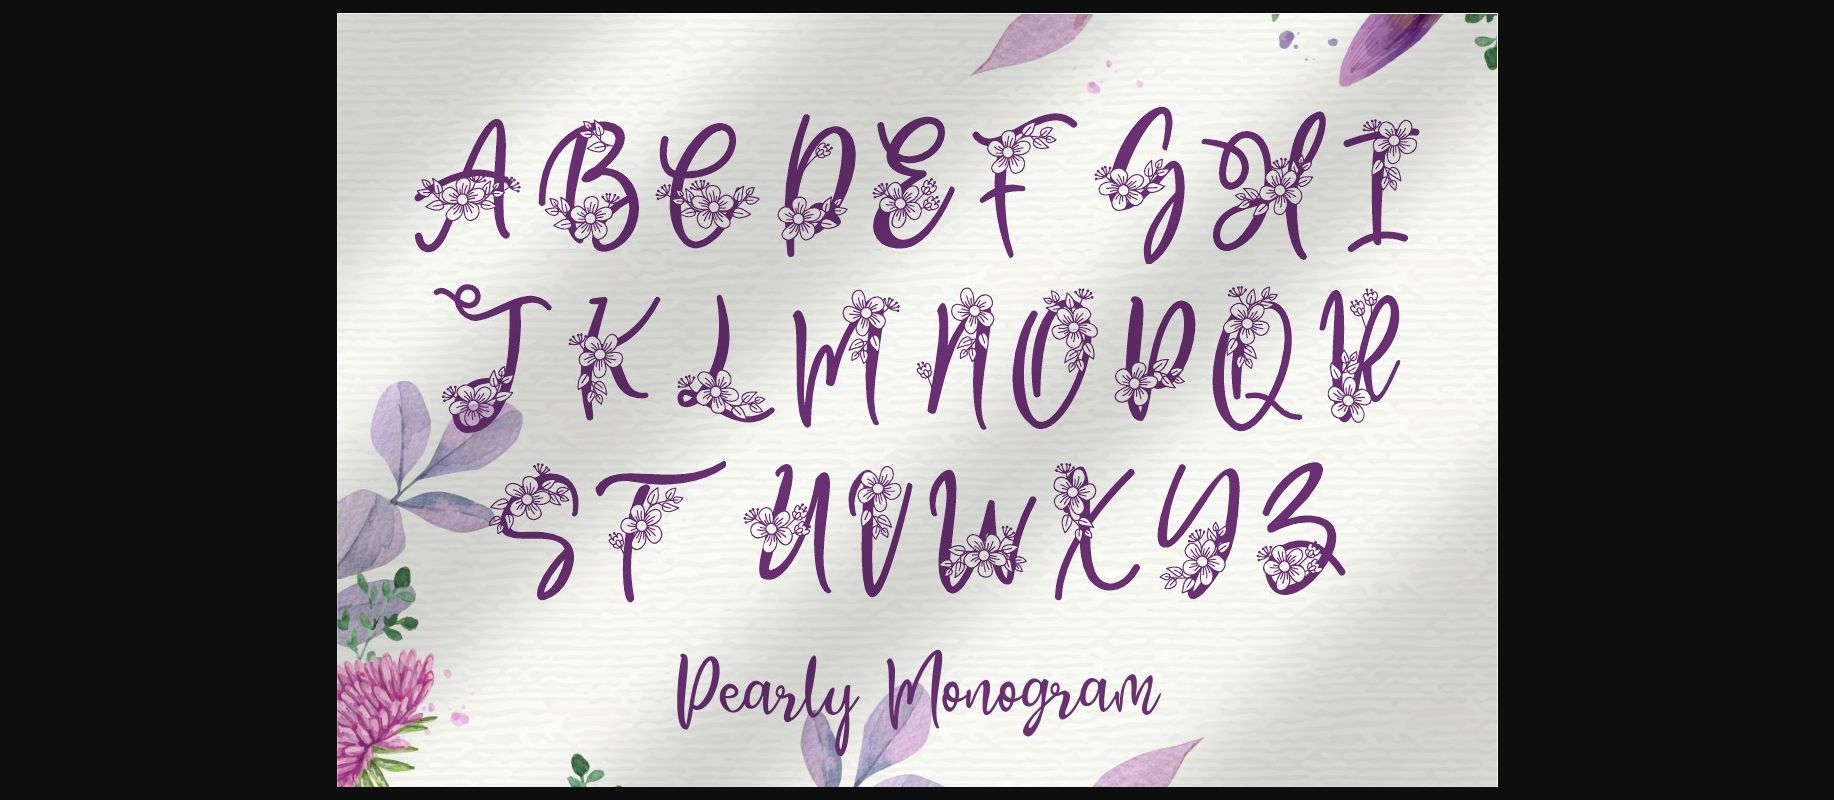 A B C D E F G H I
J K L M N O P Q R
S T U V W X Y Z
Pearly Monogram